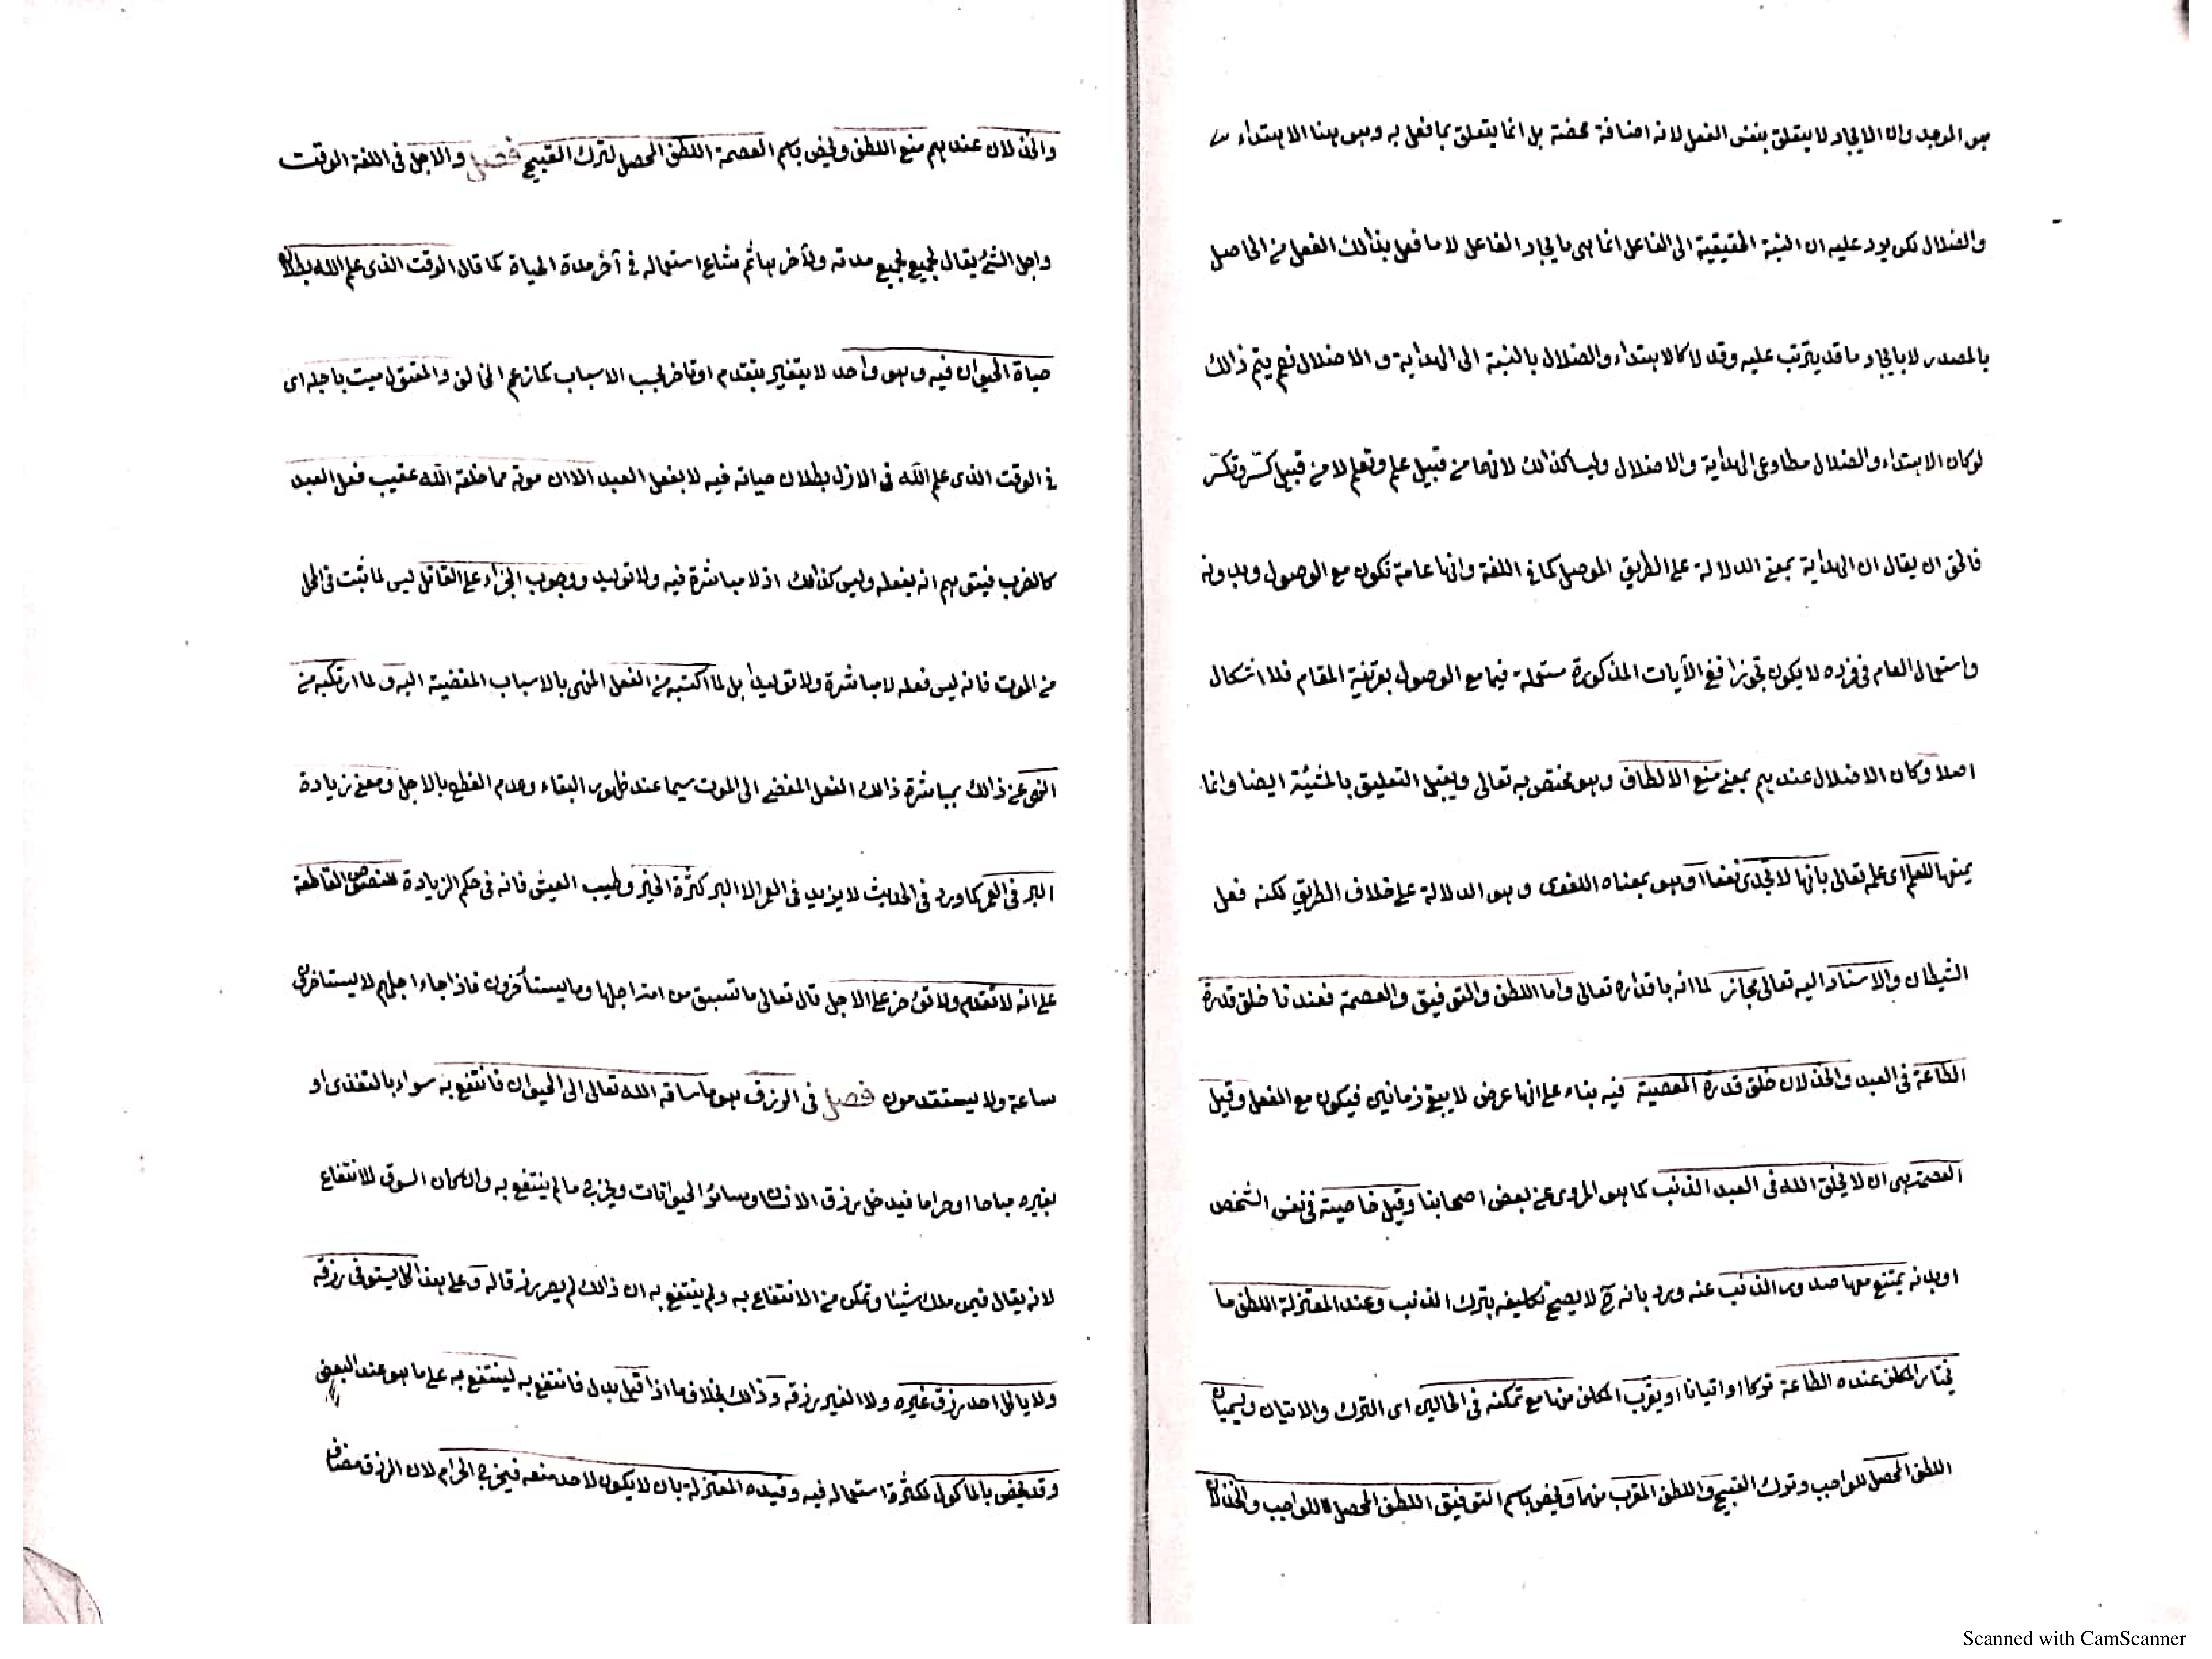 هو الموجد وان الايجاد لا يتعلق بنفس الفعل لانه اضافة محضة بل انما يتعلق بما فعل به وهو هنا الاهتداء
والضلال لكن يرد عليه ان النسبة الحقيقية الى الفاعل انما هى بايجاد الفاعل لا ما فعل بذالك الفعل من الحاصل
بالمصدر لا بايجاد ما قد يترتب عليه وقد لا كالاهتداء والضلال بالنسبة الى الهداية و الاضلال نعم يتم ذالك
لو كان الاهتداء والضلال مطاوعى الهداية والاضلال وليسا كذالك لانهما من قبيل علم وتعلم لا من قبيل كسّر وتكسّر
فالحق ان يقال ان الهداية بمعنى الدلالة على الطريق الموصل كما فى اللغة وانها عامة تكون مع الوصول وبدونه
واستعمال العام فى فرده لا يكون تجوزا ففى الآيات المذكورة مستعملة فيما مع الوصول بقرينة المقام فلا اشكال
اصلا وكان الاضلال عندهم بمعنى منع الالطاف وهو مختص به تعالى ويقبل التعليق بالمشيئة ايضا وانما
يمنعها للعلم اى علمه تعالى بانها لا تجدى نفعا او هو بمعناه اللغوى وهو الدلالة على خلاف الطريق لكنه فعل
الشيطان والاسناد اليه تعالى مجاز لما انه باقداره تعالى واما اللطف والتوفيق والعصمة فعندنا خلق قدرة
الطاعة فى العبد والخذلان خلق قدرة المعصية فيه بناء على انها عرض لا يبقى زمانين فيكون مع الفعل وقيل
العصمة هى ان لا يخلق الله فى العبد الذنب كما هو المروى عن بعض اصحابنا وقيل خاصية فى نفس الشخص
او بدنه يمتنع معها صدور الذنب عنه ورد بانه ح لا يصح تكليفه بترك الذنب وعند المعتزلة اللطف ما
يختار المكلف عنده الطاعة تركا او اتيانا او يقرب المكلف منها مع تمكنه فى الحالين اى الترك والاتيان ويسميان
اللطف المحصل للواجب وترك القبيح واللطف المقرب منهما ويخص باسم التوفيق اللطف المحصل للواجب والخذلان
والخذلان عندهم منع اللطف ويخص باسم العصمة اللطف المحصل لترك القبيح فصل والاجل فى اللغة الوقت
واجل الشئ يقال لجميع لجميع مدته ولآخرها ثم شاع استعماله فى آخر مدة الحياة كما قال الوقت الذى علم الله بطلان
حياة الحيوان فيه وهو واحد لا يتغير بتقدم او تاخر بحسب الاسباب كما زعم المخالف والمقتول ميت باجله اى
فى الوقت الذى علم الله فى الازل بطلان حياته فيه لا بفعل العبد الا ان موته مما خلقه الله عقيب فعل العبد
كالضرب فيتوهم انه بفعله وليس كذالك اذ لا مباشرة فيه ولا توليد ووجوب الجزاء على القاتل ليس لما ثبت فى المحل
من الموت فانه ليس فعله لا مباشرة ولا توليدا بل لما اكتسبه من الفعل المنهى بالاسباب المفضية اليه و لما ارتكبه من
النهى عن ذالك بمباشرة ذالك الفعل المفضى الى الموت سيما عند ظهور البقاء وعدم القطع بالاجل ومعنى زيادة
البر فى العمر كما ورد فى الحديث لا يزيد فى العمر الا البر كثرة الخير وطيب العيش فانه فى حكم الزيادة للنصوص القاطعة
على انه لا تقدم ولا تؤخر على الاجل قال تعالى ما تسبق من امة اجلها وما يستأخرون فاذا جاء اجلهم لا يستاخرون
ساعة ولا يستقدمون فصل فى الرزق هو ما ساقه الله تعالى الى الحيوان فانتفع به سواء بالتغذى او
بغيره مباحا او حراما فيدخل رزق الانسان وسائر الحيوانات ويخرج ما لم ينتفع به وان كان السوق للانتفاع
لانه يقال فيمن ملك شيئا وتمكن من الانتفاع به ولم ينتفع به ان ذالك لم يصر رزقا له وعلى هذا كل يستوفى رزقه
ولا ياكل احد رزق غيره ولا الغير رزقه وذالك بخلاف ما اذا قيل بدل فانتفع به لينتفع به على ما هو عند البعض
وقد يخص بالماكول لكثرة استعماله فيه وقيده المعتزلة بان لا يكون لاحد منعه فيخرج الحرام لان الرزق مضاف
Scanned with CamScanner